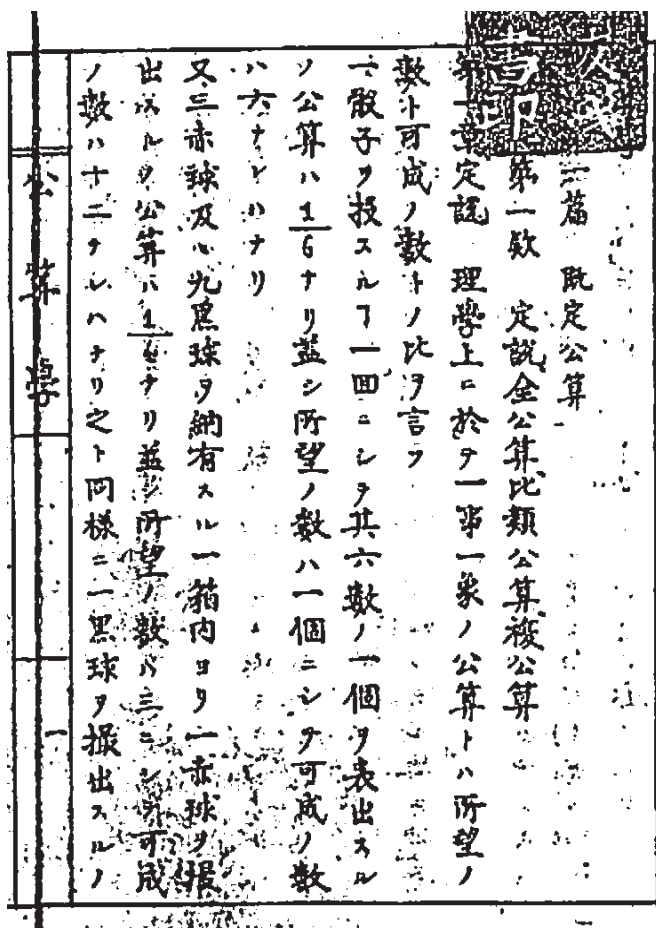 一篇 既定公算
第一欵 定説全公算比類公算複公算
第一章定説 理學上ニ於テ一事一象ノ公算トハ所望ノ
數ト可成ノ數トノ比ヲ言フ
一骰子ヲ投スルヿ一回ニシテ其六數ノ一個ヲ表出スル
ノ公算ハ1/6ナリ蓋シ所望ノ數ハ一個ニシテ可成ノ數
ハ六ナレハナリ
又三赤球及ヒ九黒球ヲ納有スル一箱内ヨリ一赤球ヲ撮
出スルノ公算ハ1/4ナリ蓋シ所望ノ數ハ三ニシテ可成
ノ數ハ十二ナレハナリ之ト同様ニ一黒球ヲ撮出スルノ
公算學
一